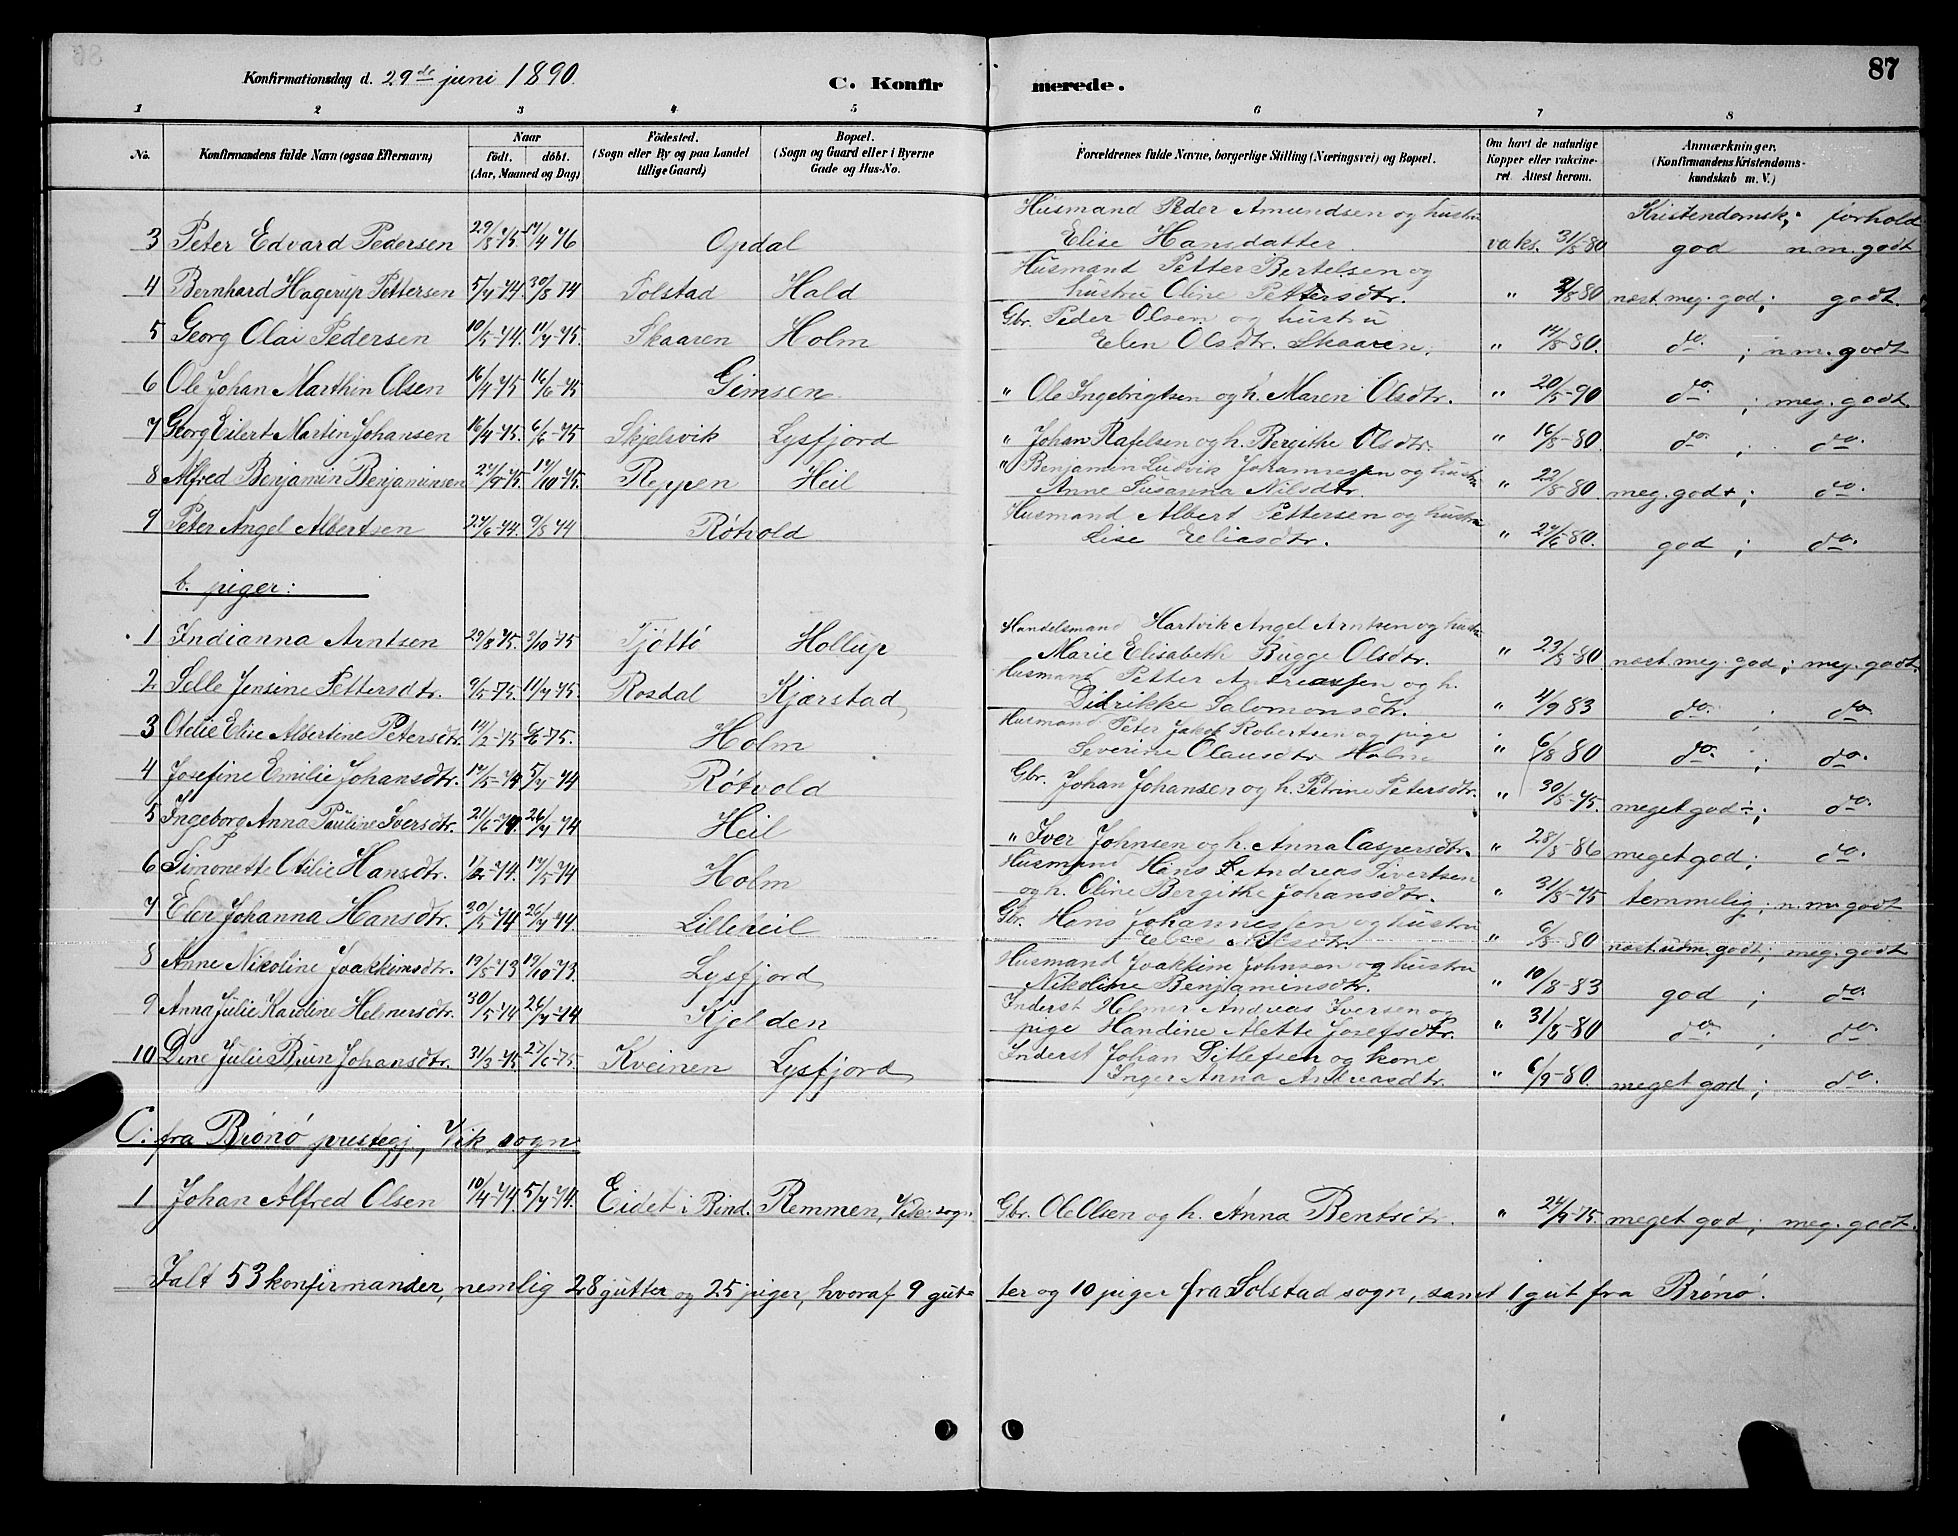 Konfirmationsdag d. 29de juni 1890.
C. Konfirmerede.
87
1 2 3 4 5 6 7 8
No.
Konfirmandens fulde Navn (ogsaa Efternavn)
Naar
født. døbt.
(Aar, Maaned og Dag)
Födested.
(Sogn eller By og paa Landet
tillige Gaard)
Bopæl.
(Sogn og Gaard eller i Byerne
Gade og Hus-No.
Forældrenes fulde Navne, borgerlige Stilling (Næringsvei) og Bopæl.
Om havt de naturlige
Kopper eller vakcine-
ret Attest herom.
Anmærkninger.
(Konfirmandens Kristendoms-
kundskab m. V.)
Husmand Peder Amundsen og hustru Kristendomsk; forhold
3 Peter Edvard Pedersen 29/8-75 17/4 76 Opdal Elise Hansdatter. vaks. 31/8-80 god n. m. godt
Husmand Petter Bertelsen og
4 Bernhard Hagerup Pettersen 5/7-74. 30/8 74 Solstad Hald hustru Oline Pettersdtr. " 80 næst. meg. god; godt.
Gbr. Peder Olsen og hustru
5 Georg Olai Pedersen 10/5-74. 11/7-75. Skaaren Holm Elen Olsdtr. Skaaren. " 17/8-80. do. ; n. m. godt
6 Ole Johan Marthin Olsen 16/4-75 16/6-75 Gimsen " Ole Ingebrigtsen og h. Maren Olsdtr. " 20/5-90 do. ; meg. godt
7 Georg Eilert Martin Johansen 16/4-75. 6/6-75 Skjelsvik Lysfjord " Johan Rafelsen og h. Bergithe Olsdtr. " 16/8-80 do. ; do.
" Benjamin Ludvik Johannessen og hustru
8 Alfred Benjamin Benjaminsen 27/9-75. 17/10-75. Reppen Heil Anne Susanna Nilsdtr. " 22/8-80 meg. god+; do.
Husmand Albert Pettersen og hustru
9 Peter Angel Albertsen 27/6-74. 9/8 74 Røtvold Lise Eliasdtr. " 27/6-80. god ; do.
b. piger:
Handelsmand Hartvik Angel Arntsen og hustru
1 Indianna Arntsen 29/8 75. 3/10-75 Tjøttø Hollup Marie Elisabeth Bugge Olsdtr. " 23/8-80 næst. meg. god; meg. godt
Husmand Petter Andreassen og h.
2 Selle Jensine Pettersdtr. 9/5-75. 11/7-75. Rosdal Kjærstad Didrikke Salomonsdtr. " 4/9 83 do. ; do.
Husmand Peter Jakob Robertsen og pige
3 Otelie Elise Albertine Petersdtr. 14/2-75 -75. Holm Severine Olausdtr. Holm " 6/8 80 do. ; do.
4 Josefine Emilie Johansdtr. 14/5-74 5/7-74 Røtvold Gbr. Johan Johansen og h. Petrine Petersdtr. " 30/8-75. meget god÷; do.
5 Ingeborg Anna Pauline Iversdtr. 21/6-74. 26/7-74 Heil " Iver Johnsen og h. Anna Caspersdtr. " 28/8-86 meget god; do.
Husmand Hans Andreas Sivertsen
6 Simonette Otilie Hansdtr. 1/2-74. 17/5-74 Holm og h. Oline Bergithe Johansdtr. " 31/8-75 temmelig; n. m. godt
Gbr. Hans Johannessen og hustru
7 Elen Johanna Hansdtr. 30/5 74 26/7 74. Lilleheil Nilsdtr. " 6/8-80 næst. udm. godt; meg. godt
Husmand Joakkim Johnsen og hustru
8 Anne Nikoline Joakkimsdtr. 19/8-73 19/10-73 Lysfjord Nikoline Benjaminsdtr. " 10/8-83 god ; do.
Inderst Helmer Andreas Iversen og
9 Anna Julie Karoline Helmersdtr. 30/5-74 26/7-74 Kjelden pige Handine Alette Josefsdtr. " 31/8-80 do. ; do.
Inderst Johan Ditlefsen og kone
10 Dine Julie Brun Johansdtr. 31/3-75 27/6-75 Kveinen Lysfjord Inger Anna Andreasdtr. " 6/9-80. meget god; do.
C: fra Brønø prestegj., Vik sogn
1 Johan Alfred Olsen 10/4-74. 5/7-74. Eidet i Bind. Remmen, Viks sogn Gbr. Ole Olsen og h. Anna Bentsdtr. " 24/9-75. meget god; meg. godt.
Ialt 53 konfirmander, nemlig 28 gutter og 25 piger, hvoraf 9 gutter og 10 piger fra Solstad sogn, samt 1 gut fra Brønø.